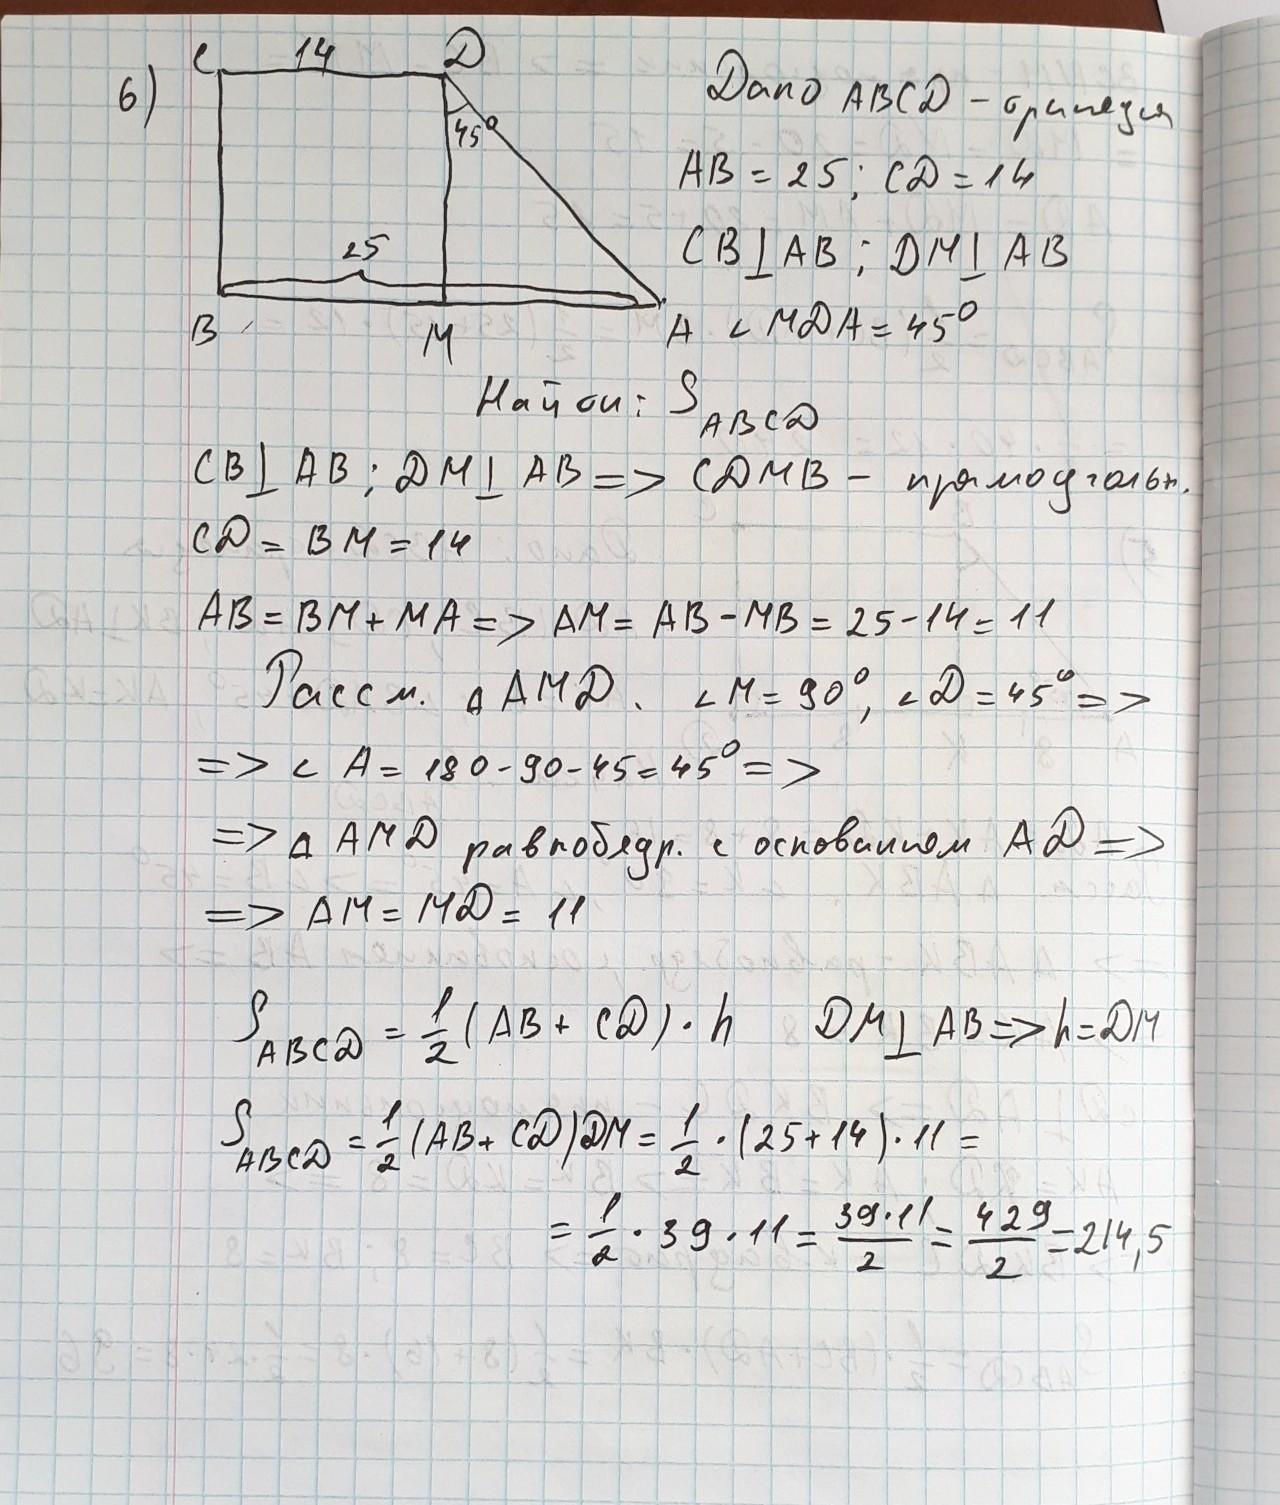 6)
C 14 D
45°
25
B M A
Дано ABCD - трапеция
AB = 25; CD = 14
CB⊥AB; DM⊥AB
∠MDA = 45°
Найти: S ABCD
CB⊥AB; DM⊥AB => CDMB - прямоугольн.
CD = BM = 14
AB = BM + MA => AM = AB - MB = 25 - 14 = 11
Рассм. △AMD. ∠M = 90°, ∠D = 45° =>
=> ∠A = 180 - 90 - 45 = 45° =>
=> △AMD равнобедр. с основанием AD =>
=> AM = MD = 11
S ABCD = 1/2 (AB + CD) · h DM⊥AB => h = DM
S ABCD = 1/2 (AB + CD) DM = 1/2 · (25 + 14) · 11 =
= 1/2 · 39 · 11 = 39·11/2 = 429/2 = 214,5